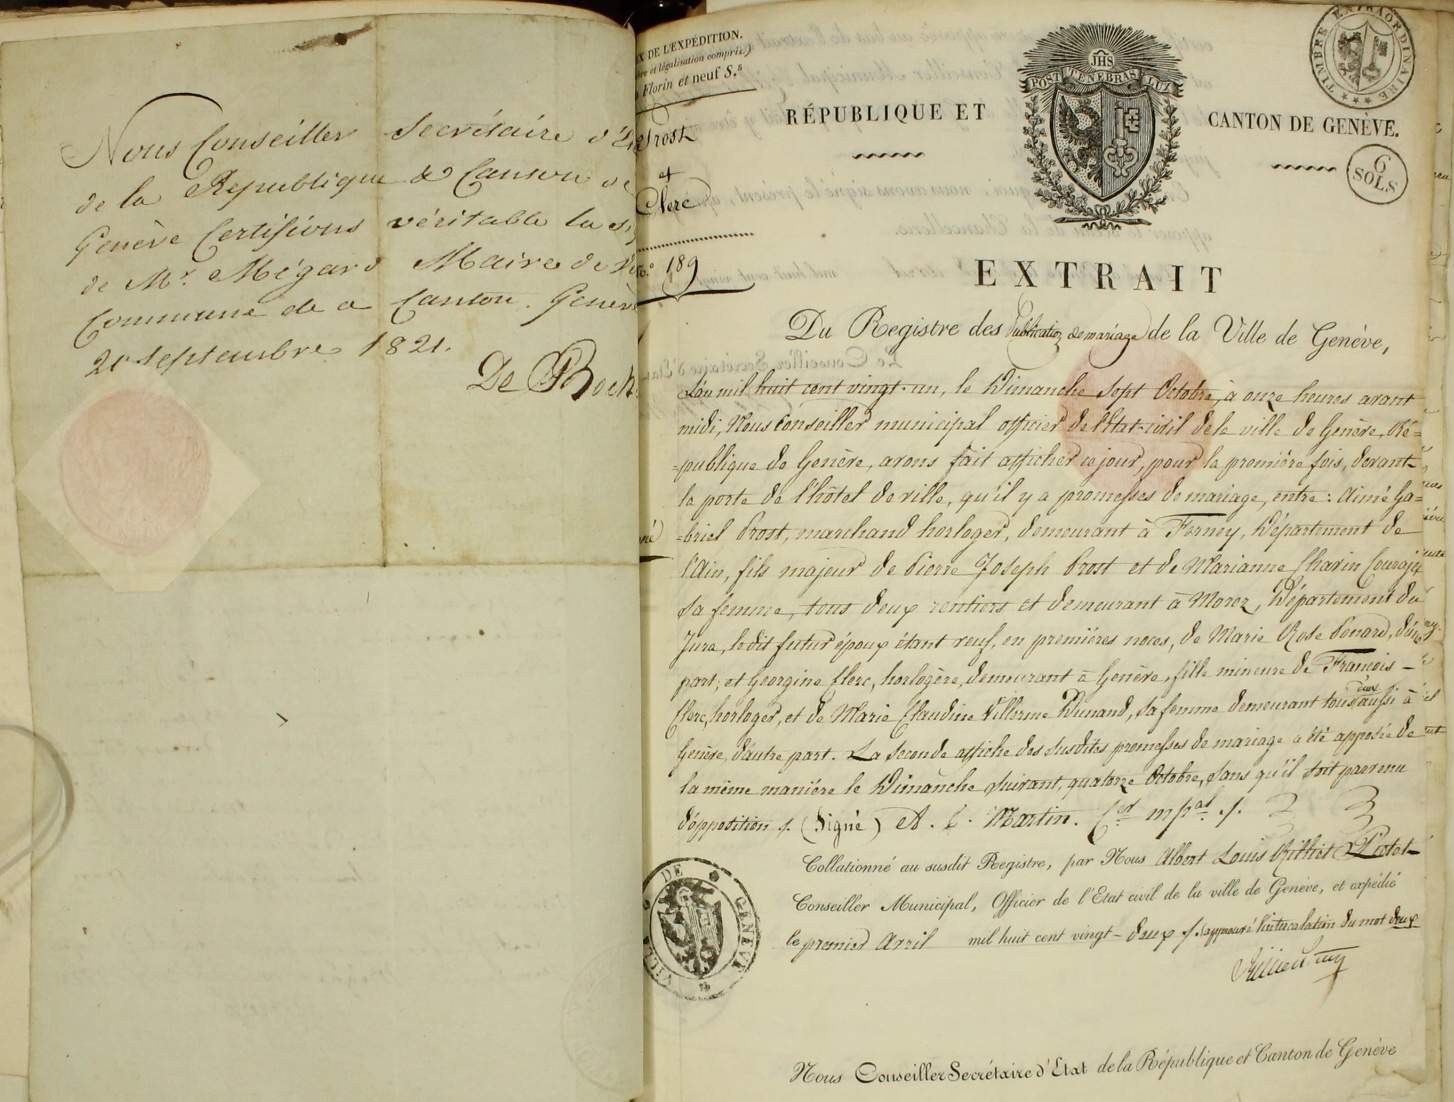 Nous Conseiller Secrétaire d'E
de la République & Canton de
Genève Certifions véritable la si
de Mr. Mégard Maire de
Commune de ce Canton. Genèv
20 Septembre 1821.
De Roch
X DE L'EXPÉDITION.
re et légalisation compris.)
Florin et neuf S.s
Prost
et
Clerc
No. 189
RÉPUBLIQUE ET
JHS
POST TENEBRAS LUX
CANTON DE GENÈVE.
TIMBRE EXTRAORDINAIRE
6
SOLS
EXTRAIT
Du Registre des Publication de mariage de la Ville de Genève,
L'an mil huit cent vingt-un, le Dimanche Sept Octobre, à onze heures avant
midi, Nous Conseiller municipal officier de l'État-civil de la ville de Genève, Ré=
=publique de Genève, avons fait afficher ce jour, pour la première fois, devant
la porte de l'hôtel de ville, qu'il y a promesses de mariage, entre: Aimé Ga=
=briel Prost, marchand horloger, demeurant à Ferney, Département de
l'Ain, fils majeur de Pierre Joseph Prost et de Marianne Chavin
sa femme, tous deux rentiers et demeurant à Morez, Département du
Jura, ledit futur époux étant veuf, en premières noces, de Marie Rose Penard, d'une
part; et Georgine Clerc, horlogère, demeurant à Genève, fille mineure de François
Clerc, horloger, et de Marie Claudine Villerme Dunand, sa femme demeurant tous deux aussi à
Genève, d'autre part. La seconde affiche des susdites promesses de mariage a été apposée de
la même manière le Dimanche suivant, quatorze Octobre, sans qu'il soit parvenu
d'opposition ./. (Signé) A. L. Martin. Cer mpal ./.
Collationné au susdit Registre, par Nous Albert Louis Rilliet
Conseiller Municipal, Officier de l'Etat civil de la ville de Genève, et expédié
le premier Avril mil huit cent vingt-deux ./. J'approuve l'intercalation du mot deux
VILLE DE GENEVE
Nous Conseiller Secrétaire d'Etat de la République et Canton de Genève